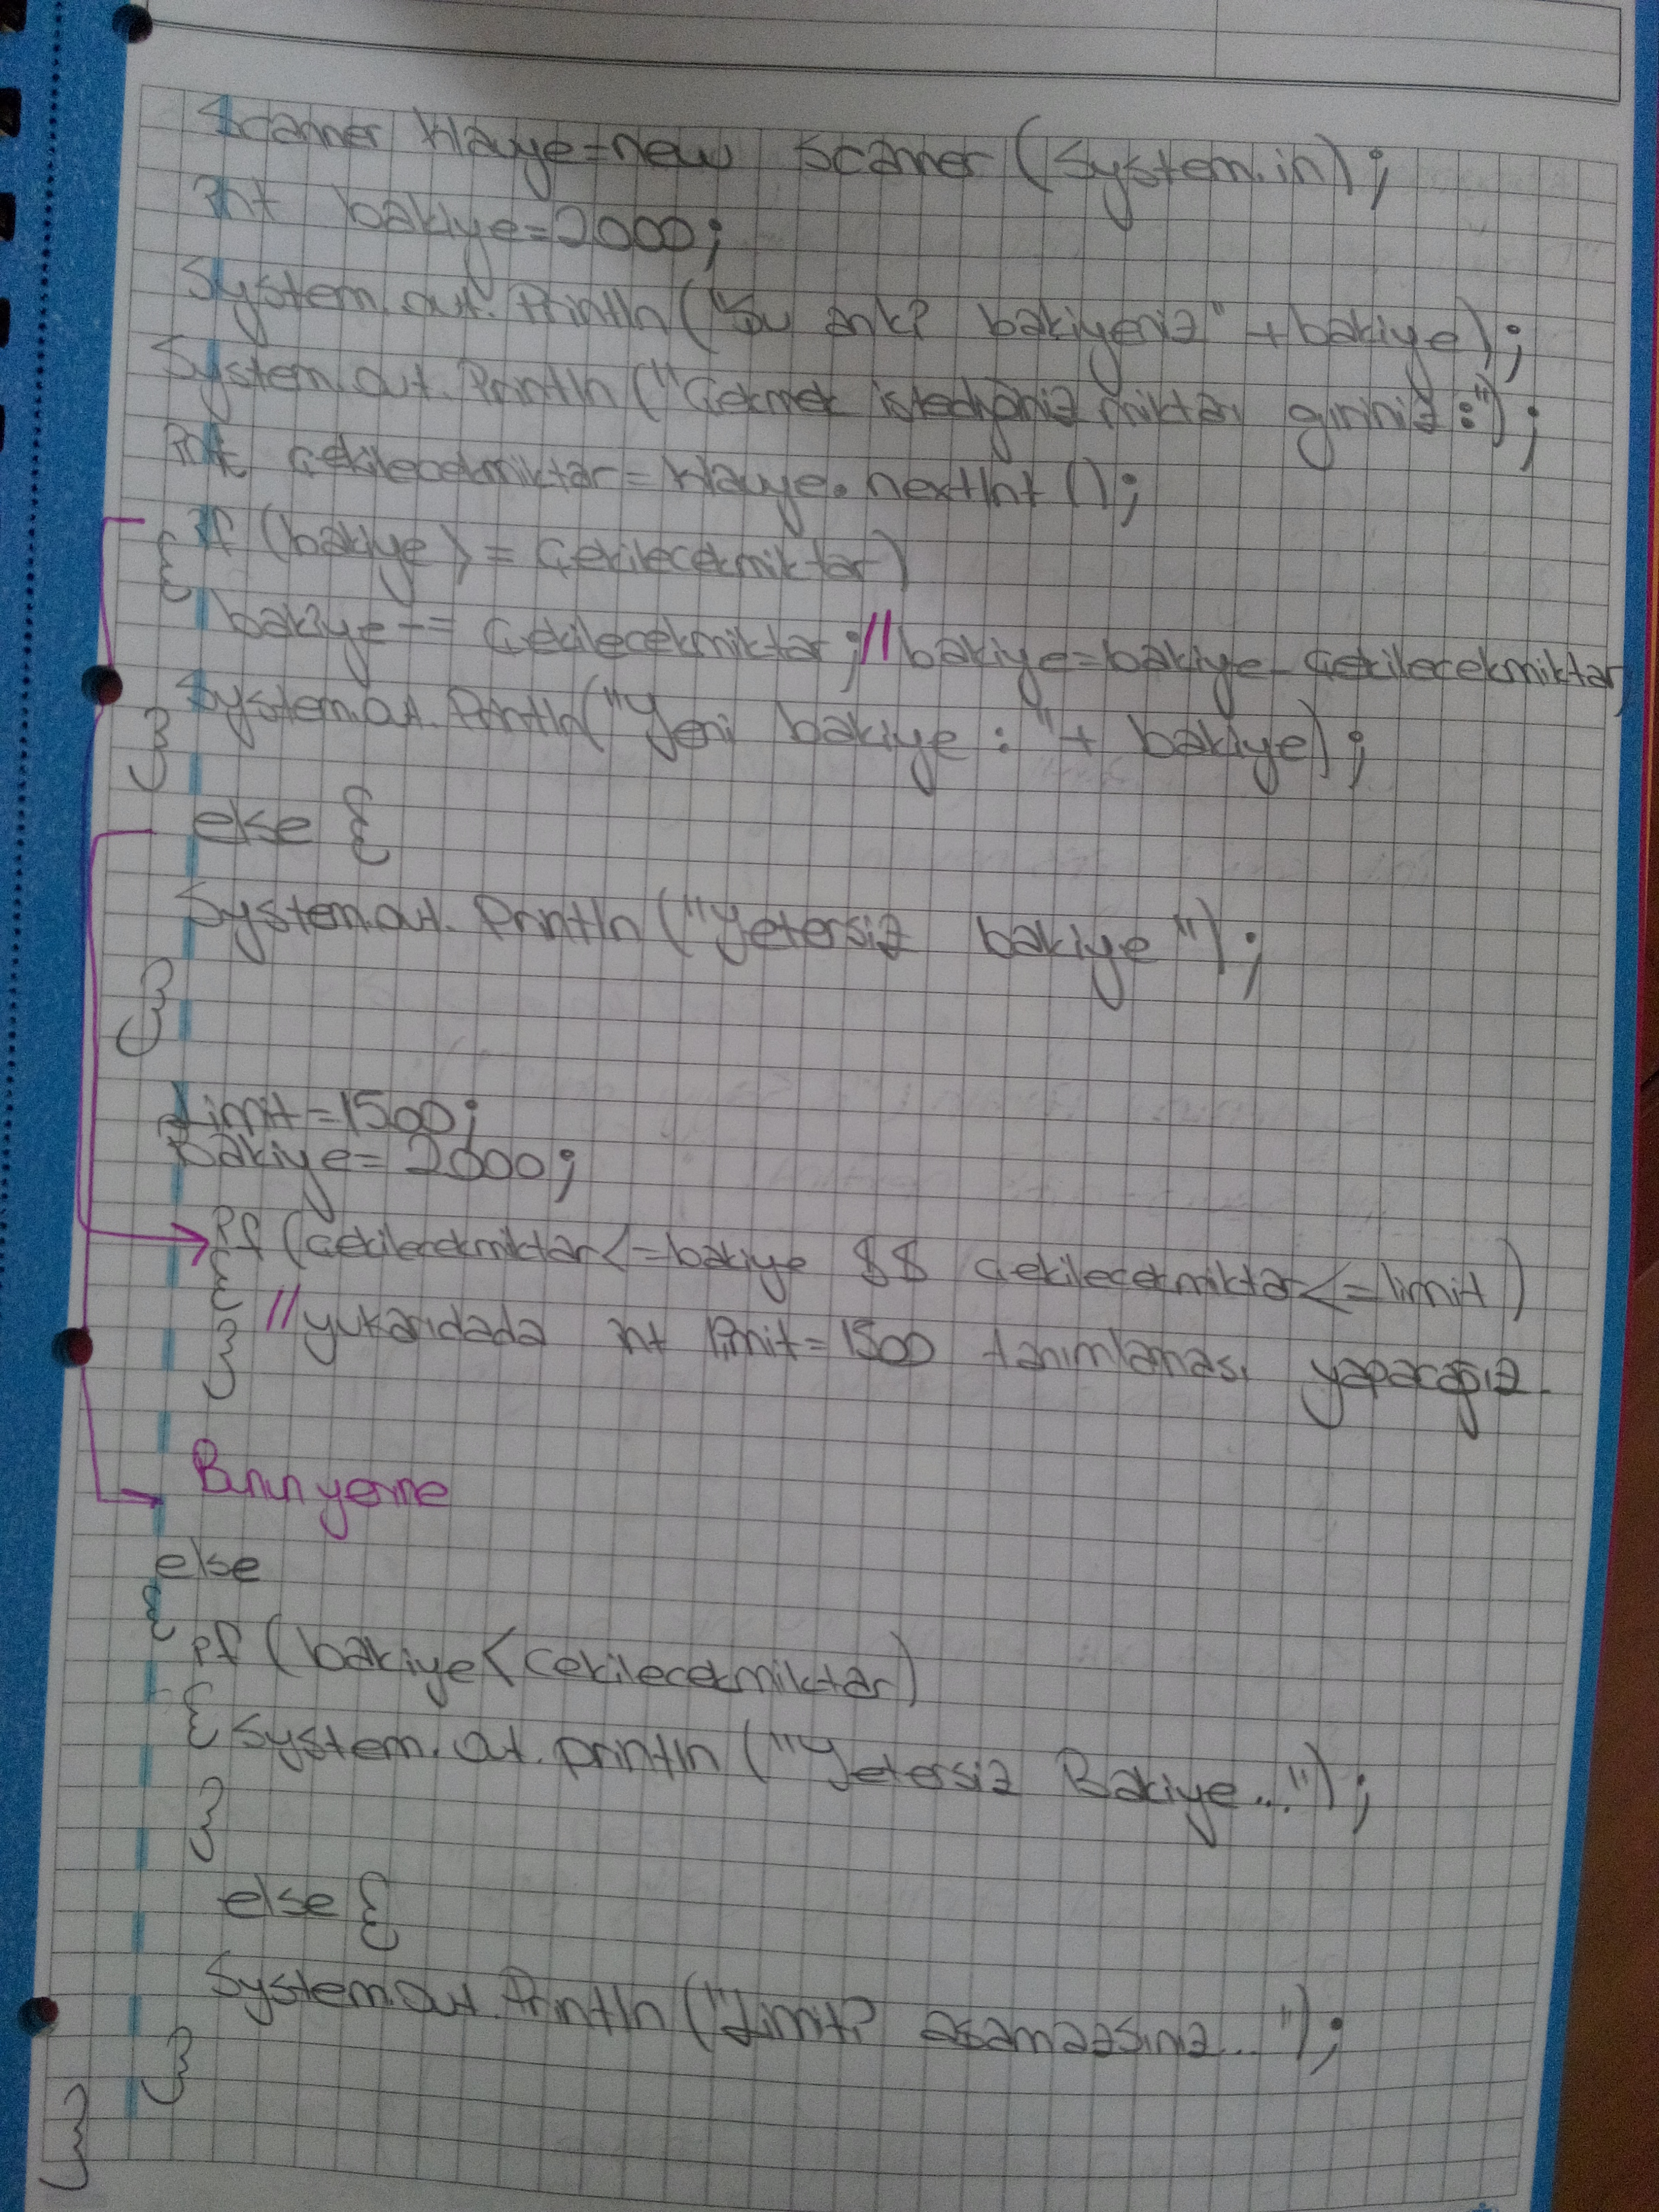 Scanner klavye=new Scanner (System.in);
int bakiye=2000;
System.out.Println("Şu anki bakiyeniz"+bakiye);
System.out.Println("Çekmek istediğiniz miktarı giriniz:");
int çekilecekmiktar=klavye.nextInt();
if (bakiye>=çekilecekmiktar)
{
bakiye-=çekilecekmiktar;//bakiye=bakiye-çekilecekmiktar;
System.out.Println("Yeni bakiye:"+ bakiye);
}
else {
System.out.Println("Yetersiz bakiye");
}
Limit=1500;
Bakiye=2000;
if (çekilecekmiktar<=bakiye && çekilecekmiktar<=limit)
{
//yukarıdada int limit=1500 tanımlaması yapacağız.
}
Bunun yerine
else
{
if (bakiye<cekilecekmiktar)
{ System.out.println("Yetersiz Bakiye...");
}
else {
System.out.Println("Limiti aşamazsınız...");
}
}